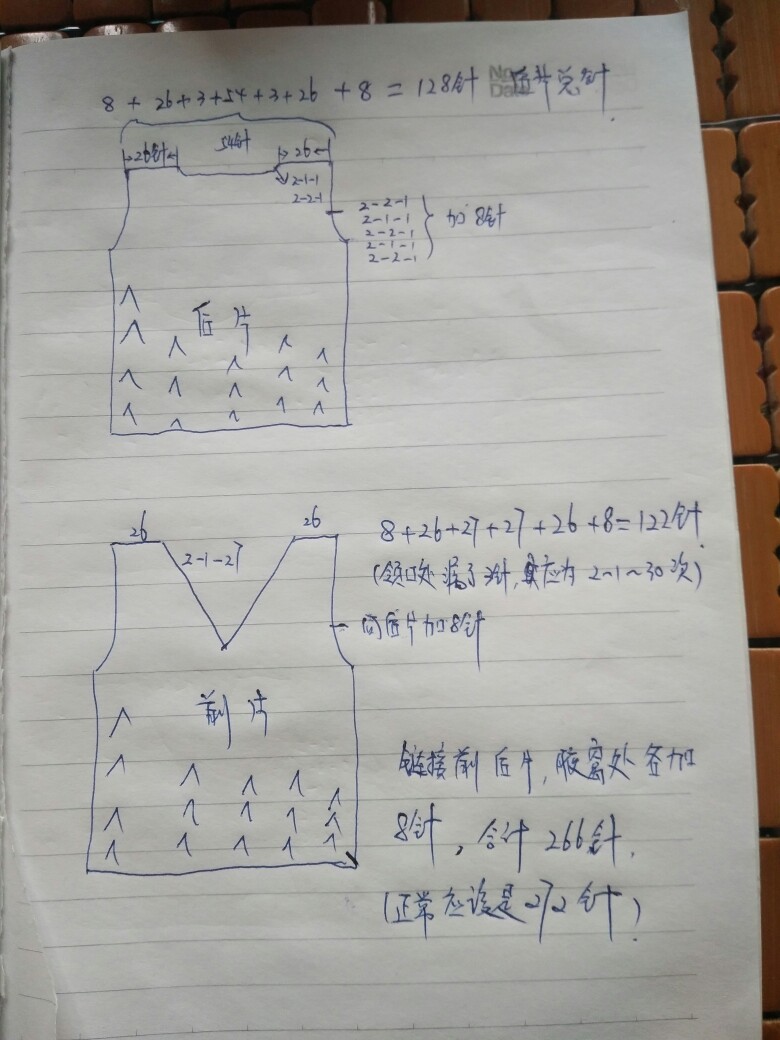 8 + 26 + 3 + 54 + 3 + 26 + 8 = 128针 后片总针
No.
Date
→26针← 54针 →26←
2-1-1
2-2-1
2-2-1
2-1-1
2-2-1
2-1-1
2-2-1
加8针
后片
26 26
2-1-27
8+26+27+27+26+8=122针
(领口处漏了3针,实应为2-1~30次)
同后片加8针
前片
链接前后片,腋窝处各加
8针,合计266针,
(正常应该是272针)